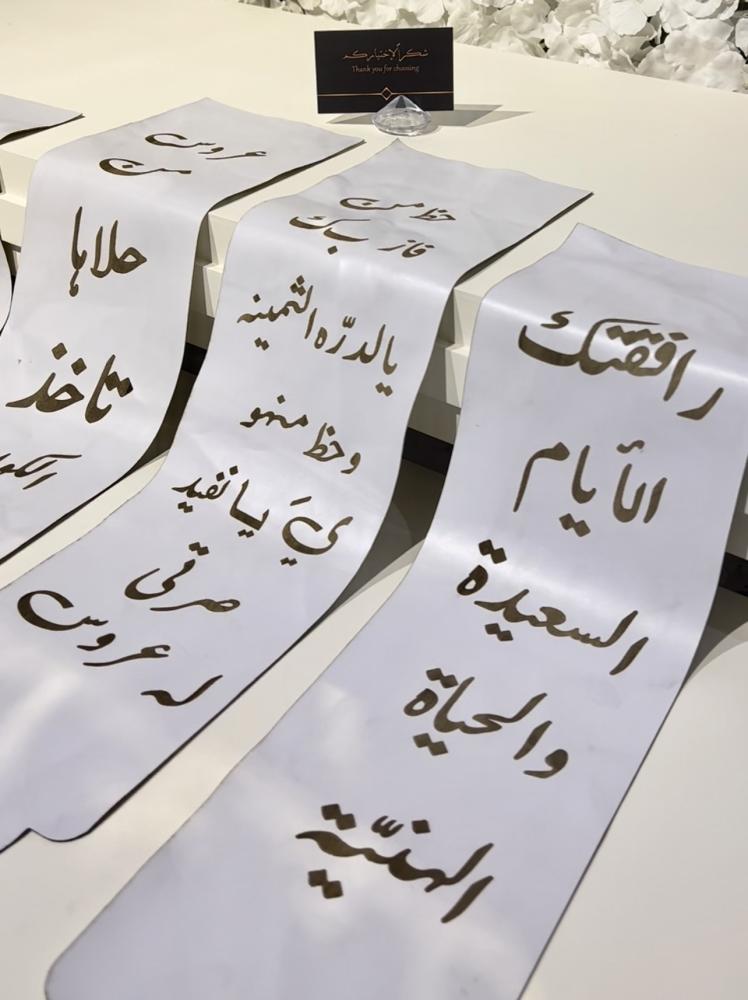 شكراً لاختياركم
Thank you for choosing
رافقتك
الأيام
السعيدة
والحياة
الهنيّة
حظ من
فاز بك
يالدرّه الثمينه
وحظ منهو
يَ يا نفيد
صرتي
له عروس
عروس
من
حلاها
تاخذ